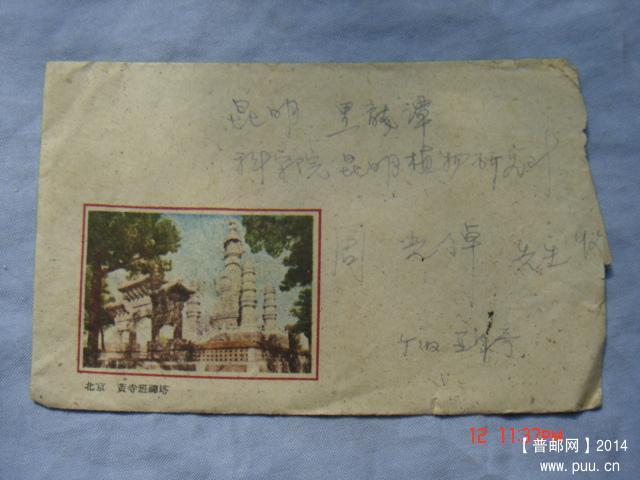 昆明 黑龙潭
科学院昆明植物研究所
周光倬 先生收
北京 黄寺班禅塔
12 11:37PM
【普邮网】2014
www.puu.cn